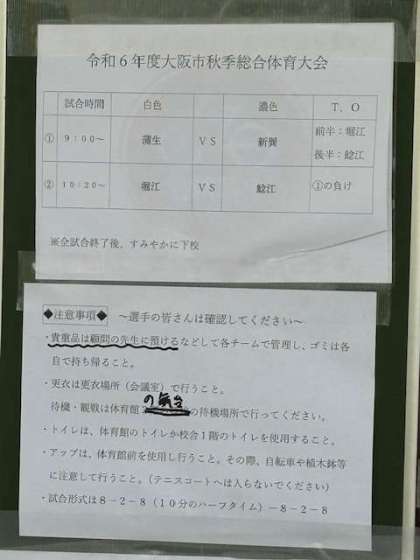 令和６年度大阪市秋季総合体育大会
試合時間 白色 濃色 Ｔ．Ｏ
① ９：００～ 蒲生 ＶＳ 新巽 前半：堀江
後半：鯰江
② １０：２０～ 堀江 ＶＳ 鯰江 ①の負け
※全試合終了後、すみやかに下校
◆注意事項◆ ～選手の皆さんは確認してください～
・貴重品は顧問の先生に預けるなどして各チームで管理し、ゴミは各
自で持ち帰ること。
・更衣は更衣場所（会議室）で行うこと。
の舞台
待機・観戦は体育館の待機場所で行ってください。
・トイレは、体育館のトイレか校舎１階のトイレを使用すること。
・アップは、体育館前を使用し行うこと。その際、自転車や植木鉢等
に注意して行うこと。（テニスコートへは入らないでください）
・試合形式は８－２－８（１０分のハーフタイム）－８－２－８